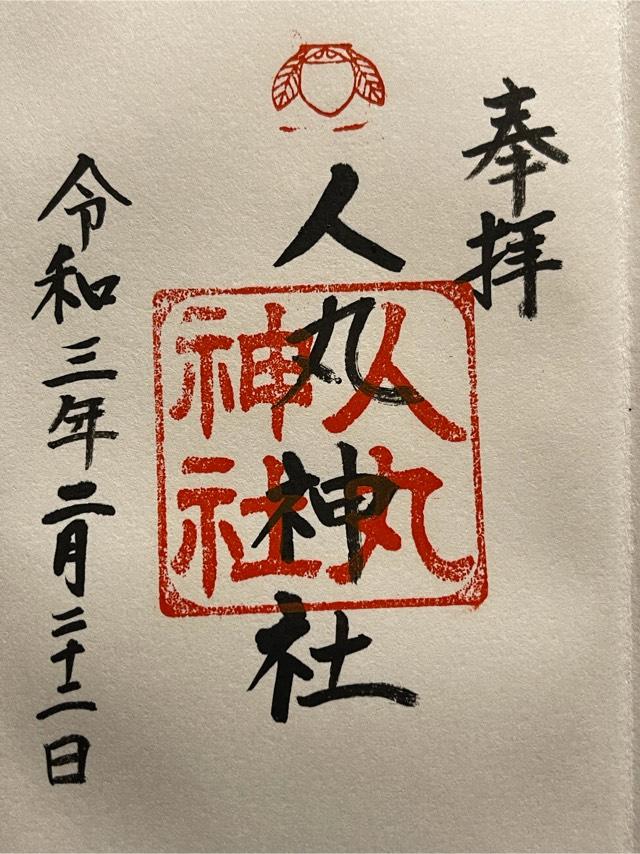 奉拝
人丸神社
人丸
神社
令和三年二月二十二日